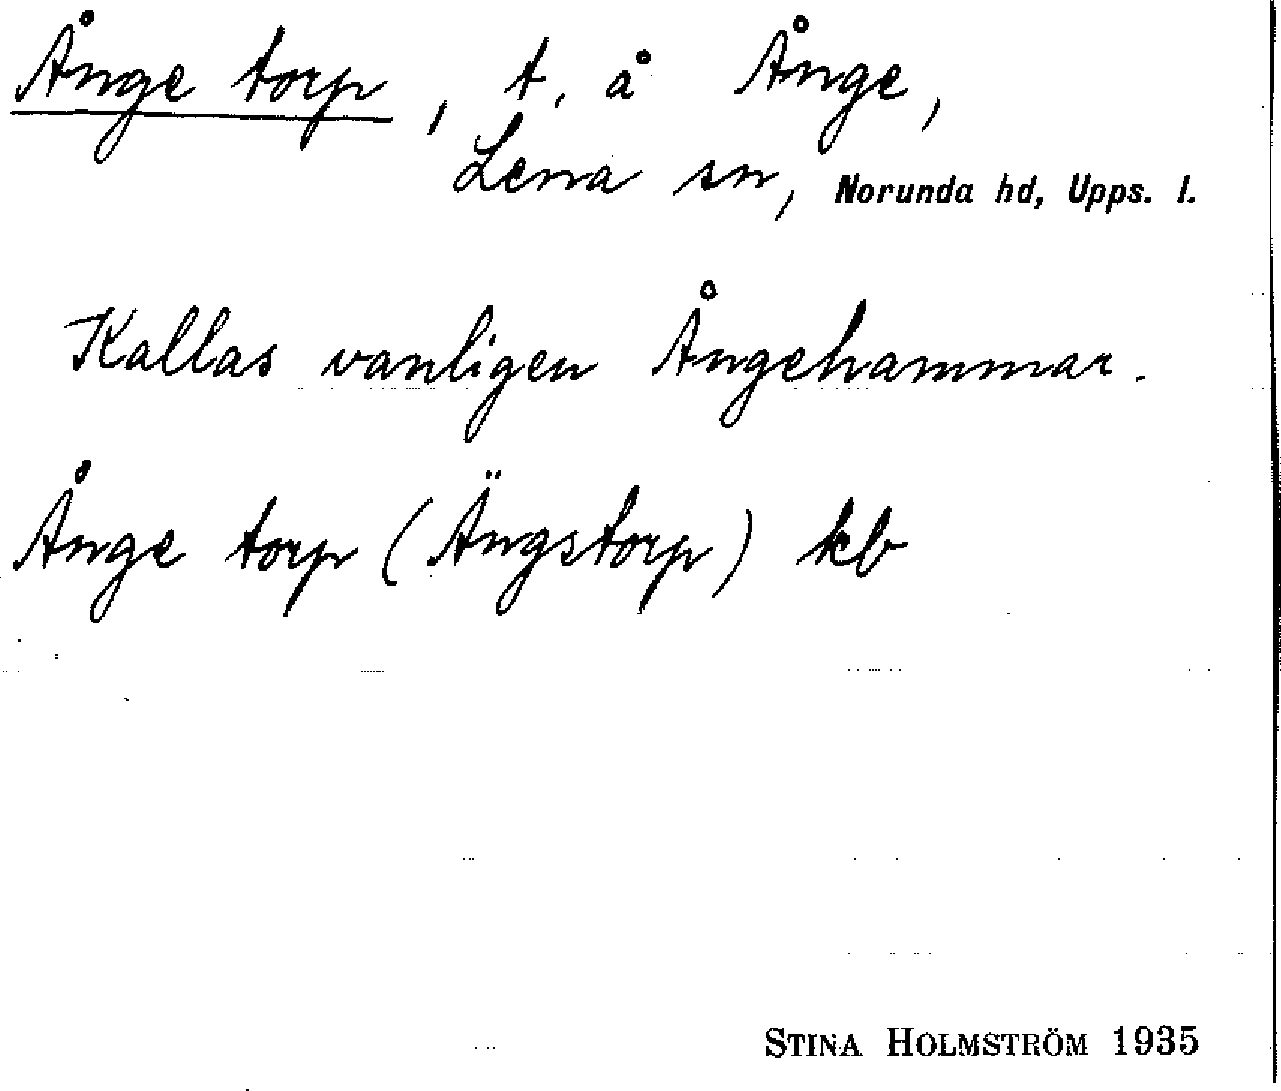 Ånge torp, t. å Ånge,
Lena sn, Norunda hd, Upps. l.
Kallas vanligen Ångehammar.
Ånge torp (Ängstorp) kb
STINA HOLMSTRÖM 1935